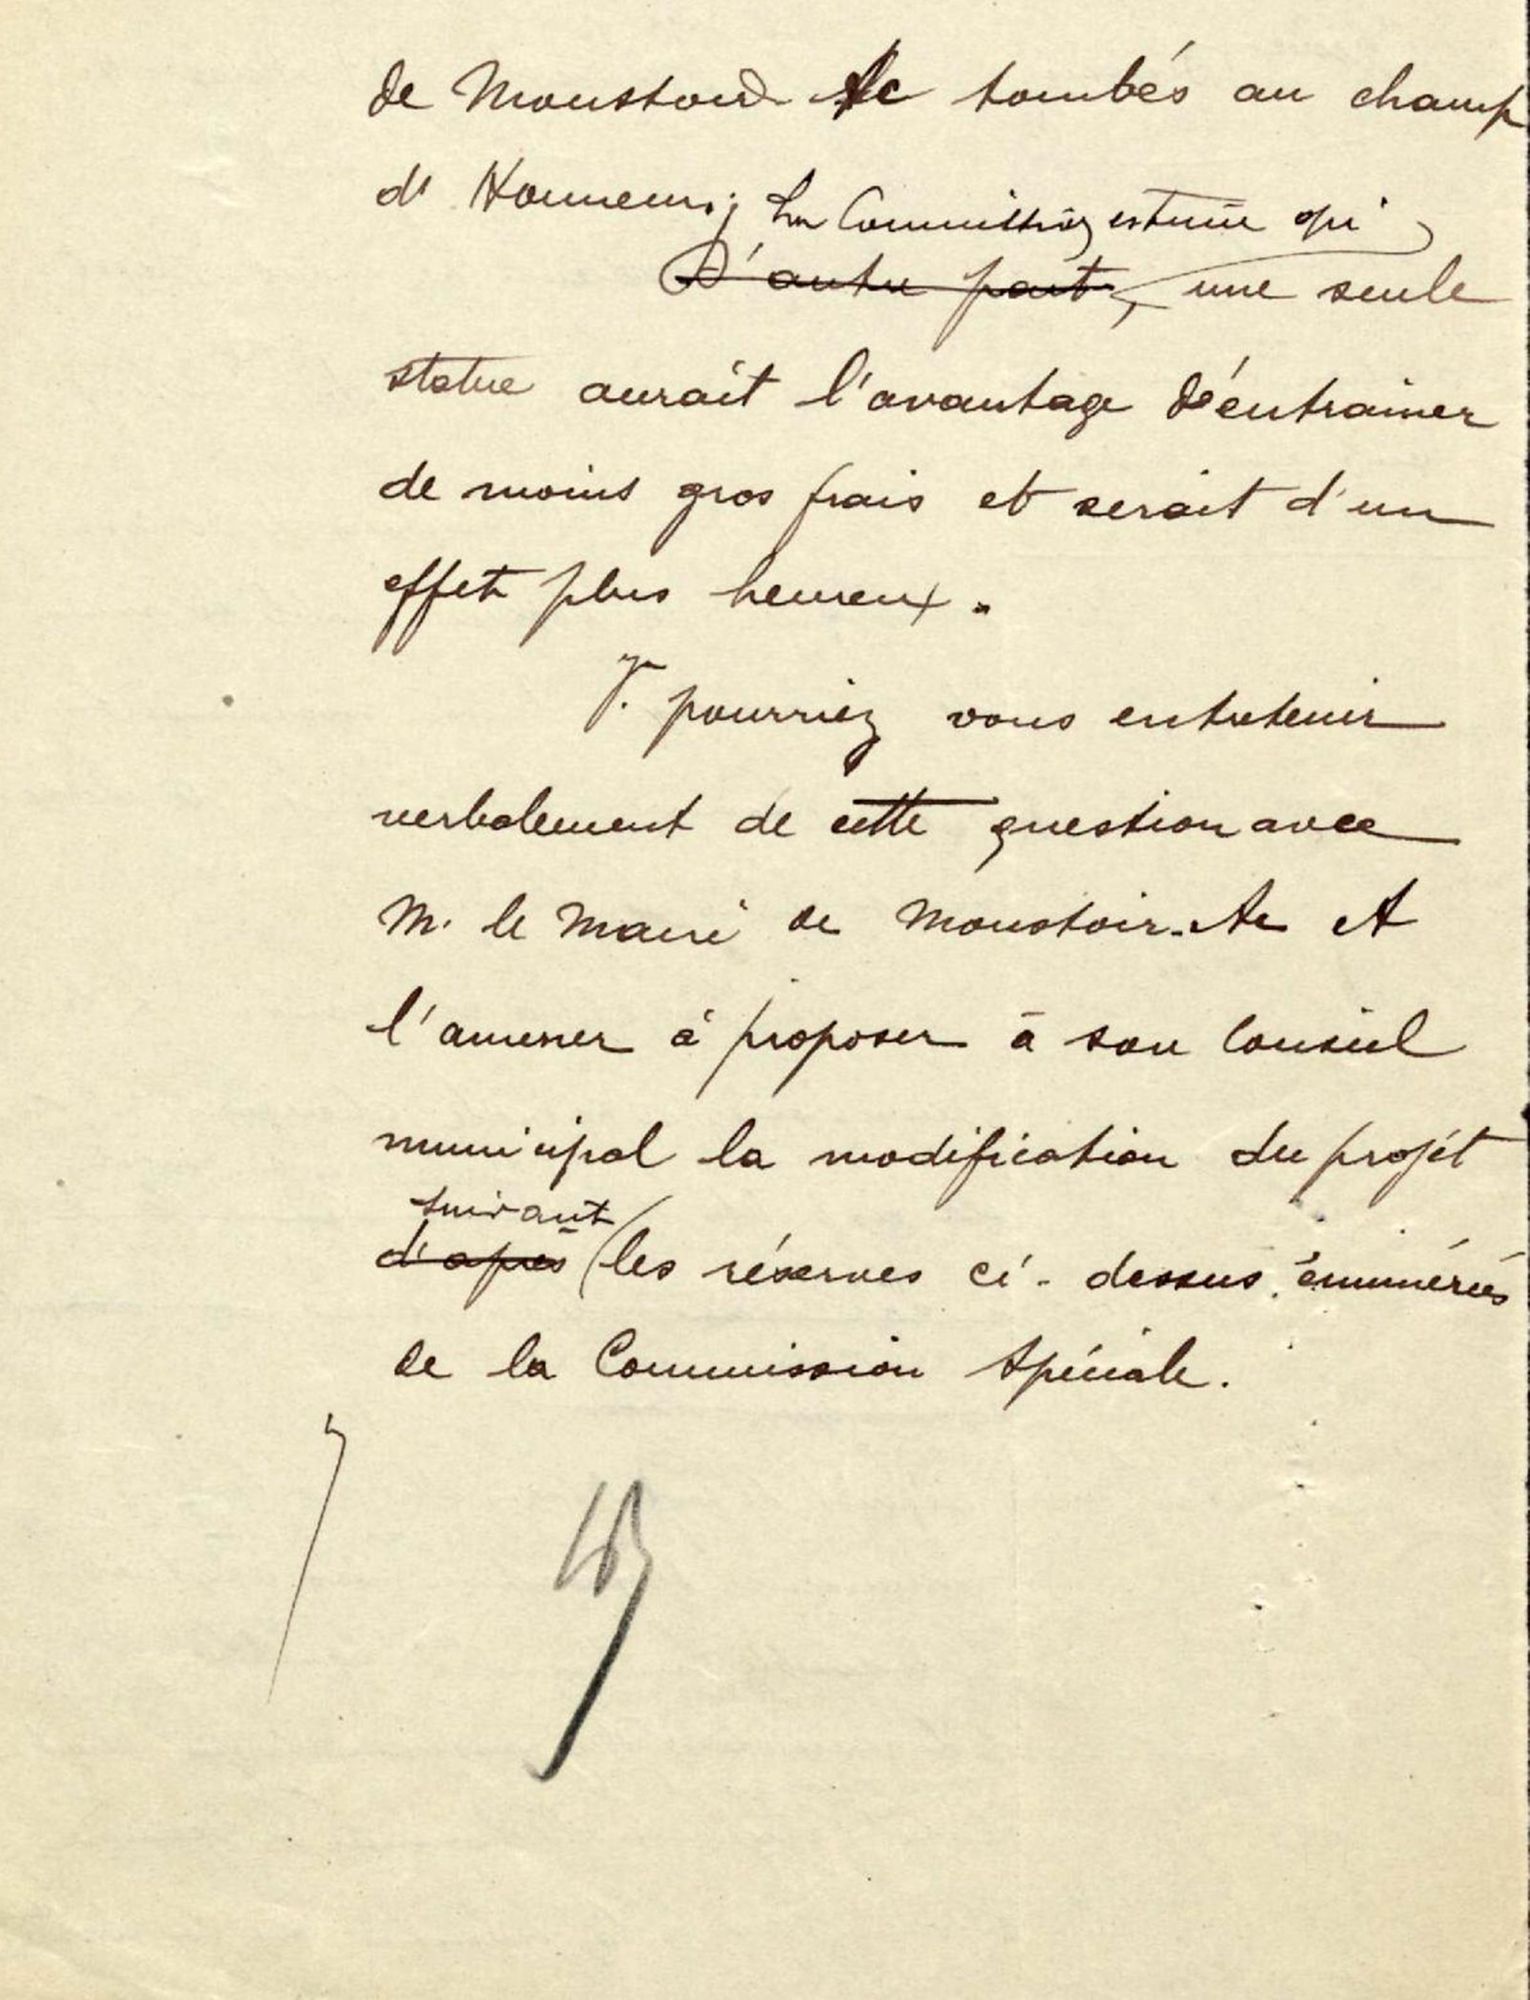 de Moustoir Ac tombés au champ
d' Honneur; La Commission estime qu'
D'autre part, une seule
statue aurait l'avantage d'entrainer
de moins gros frais et serait d'un
effet plus heureux.
pourriez vous entretenir
verbalement de cette question avec
M. le Maire de Moustoir-Ac et
l'amener à proposer à son Conseil
municipal la modification du projet
suivant
d'après les réserves ci-dessus énumérées
de la Commission Spéciale.